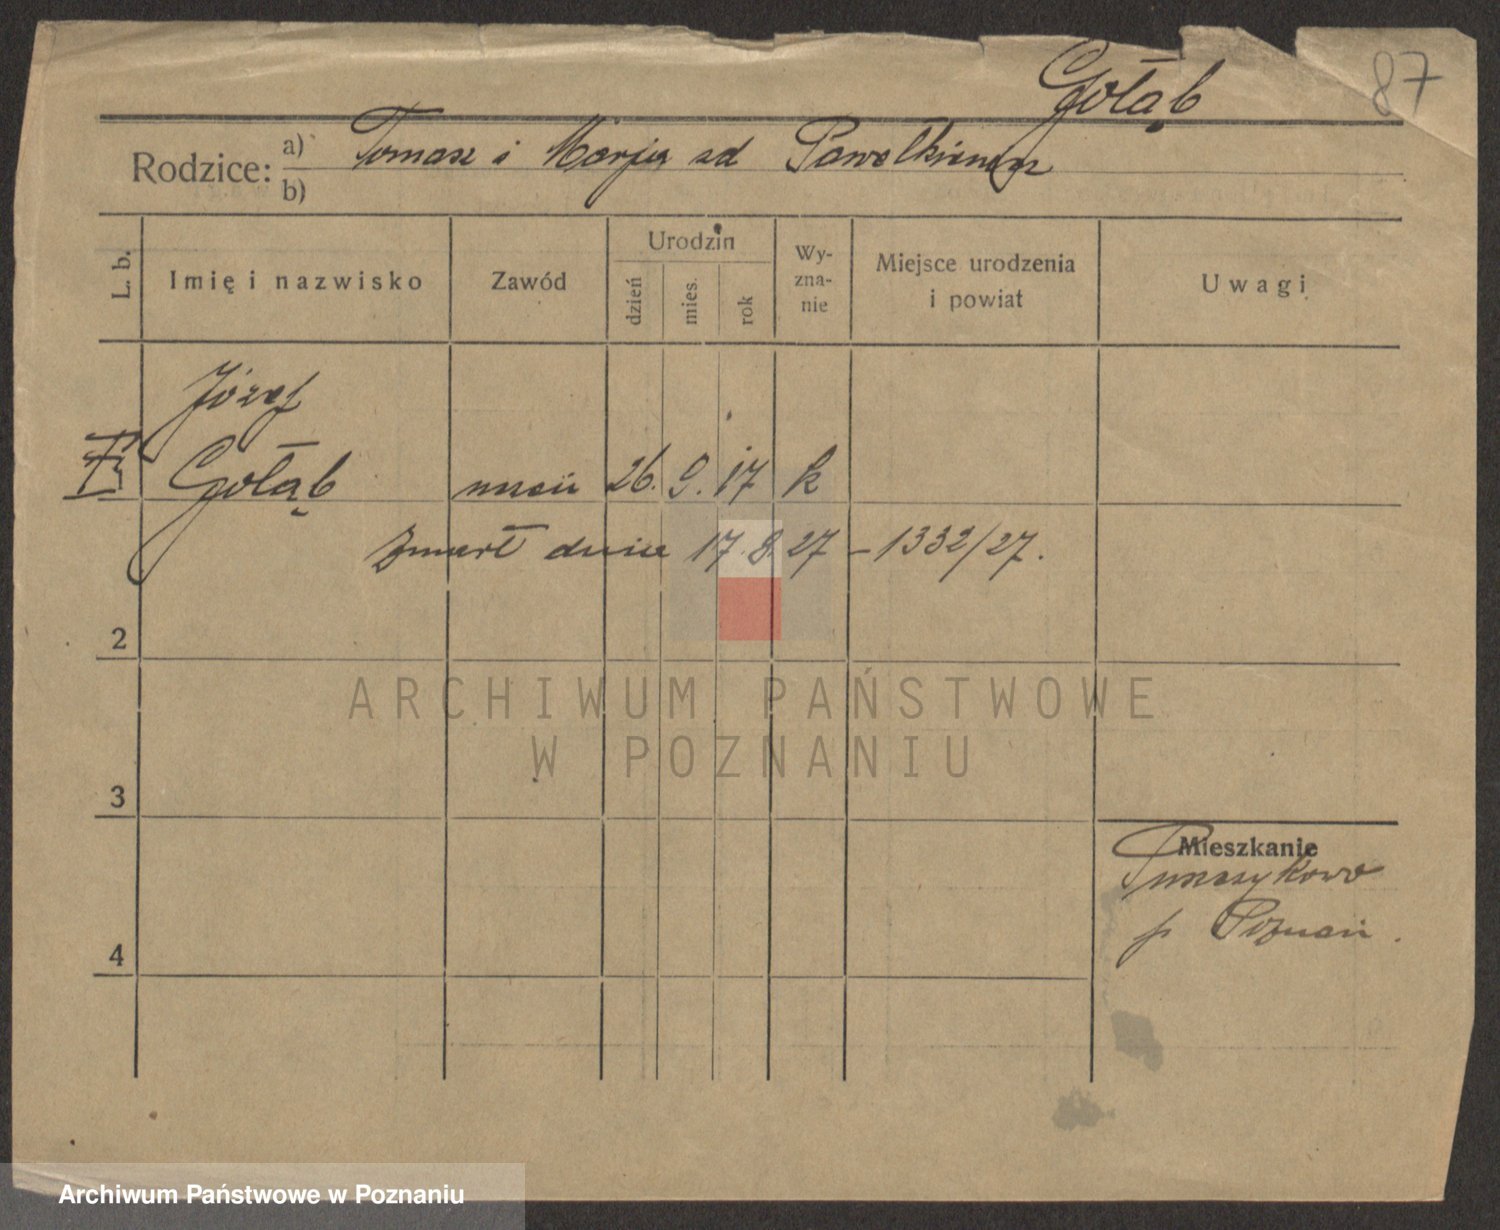 Gołąb
87
Rodzice: a) Tomasz i Marja zd
b)
L. b.
Imię i nazwisko
Zawód
Urodzin
dzień
mies.
rok
Wy-
zna-
nie
Miejsce urodzenia
i powiat
Uwagi
Józef
Gołąb uczeń 26. 9. 17 k
Zmarł dnia 17.8.27 – 1332/27.
2
3
4
Mieszkanie
p Poznań.
ARCHIWUM PAŃSTWOWE
W POZNANIU
Archiwum Państwowe w Poznaniu